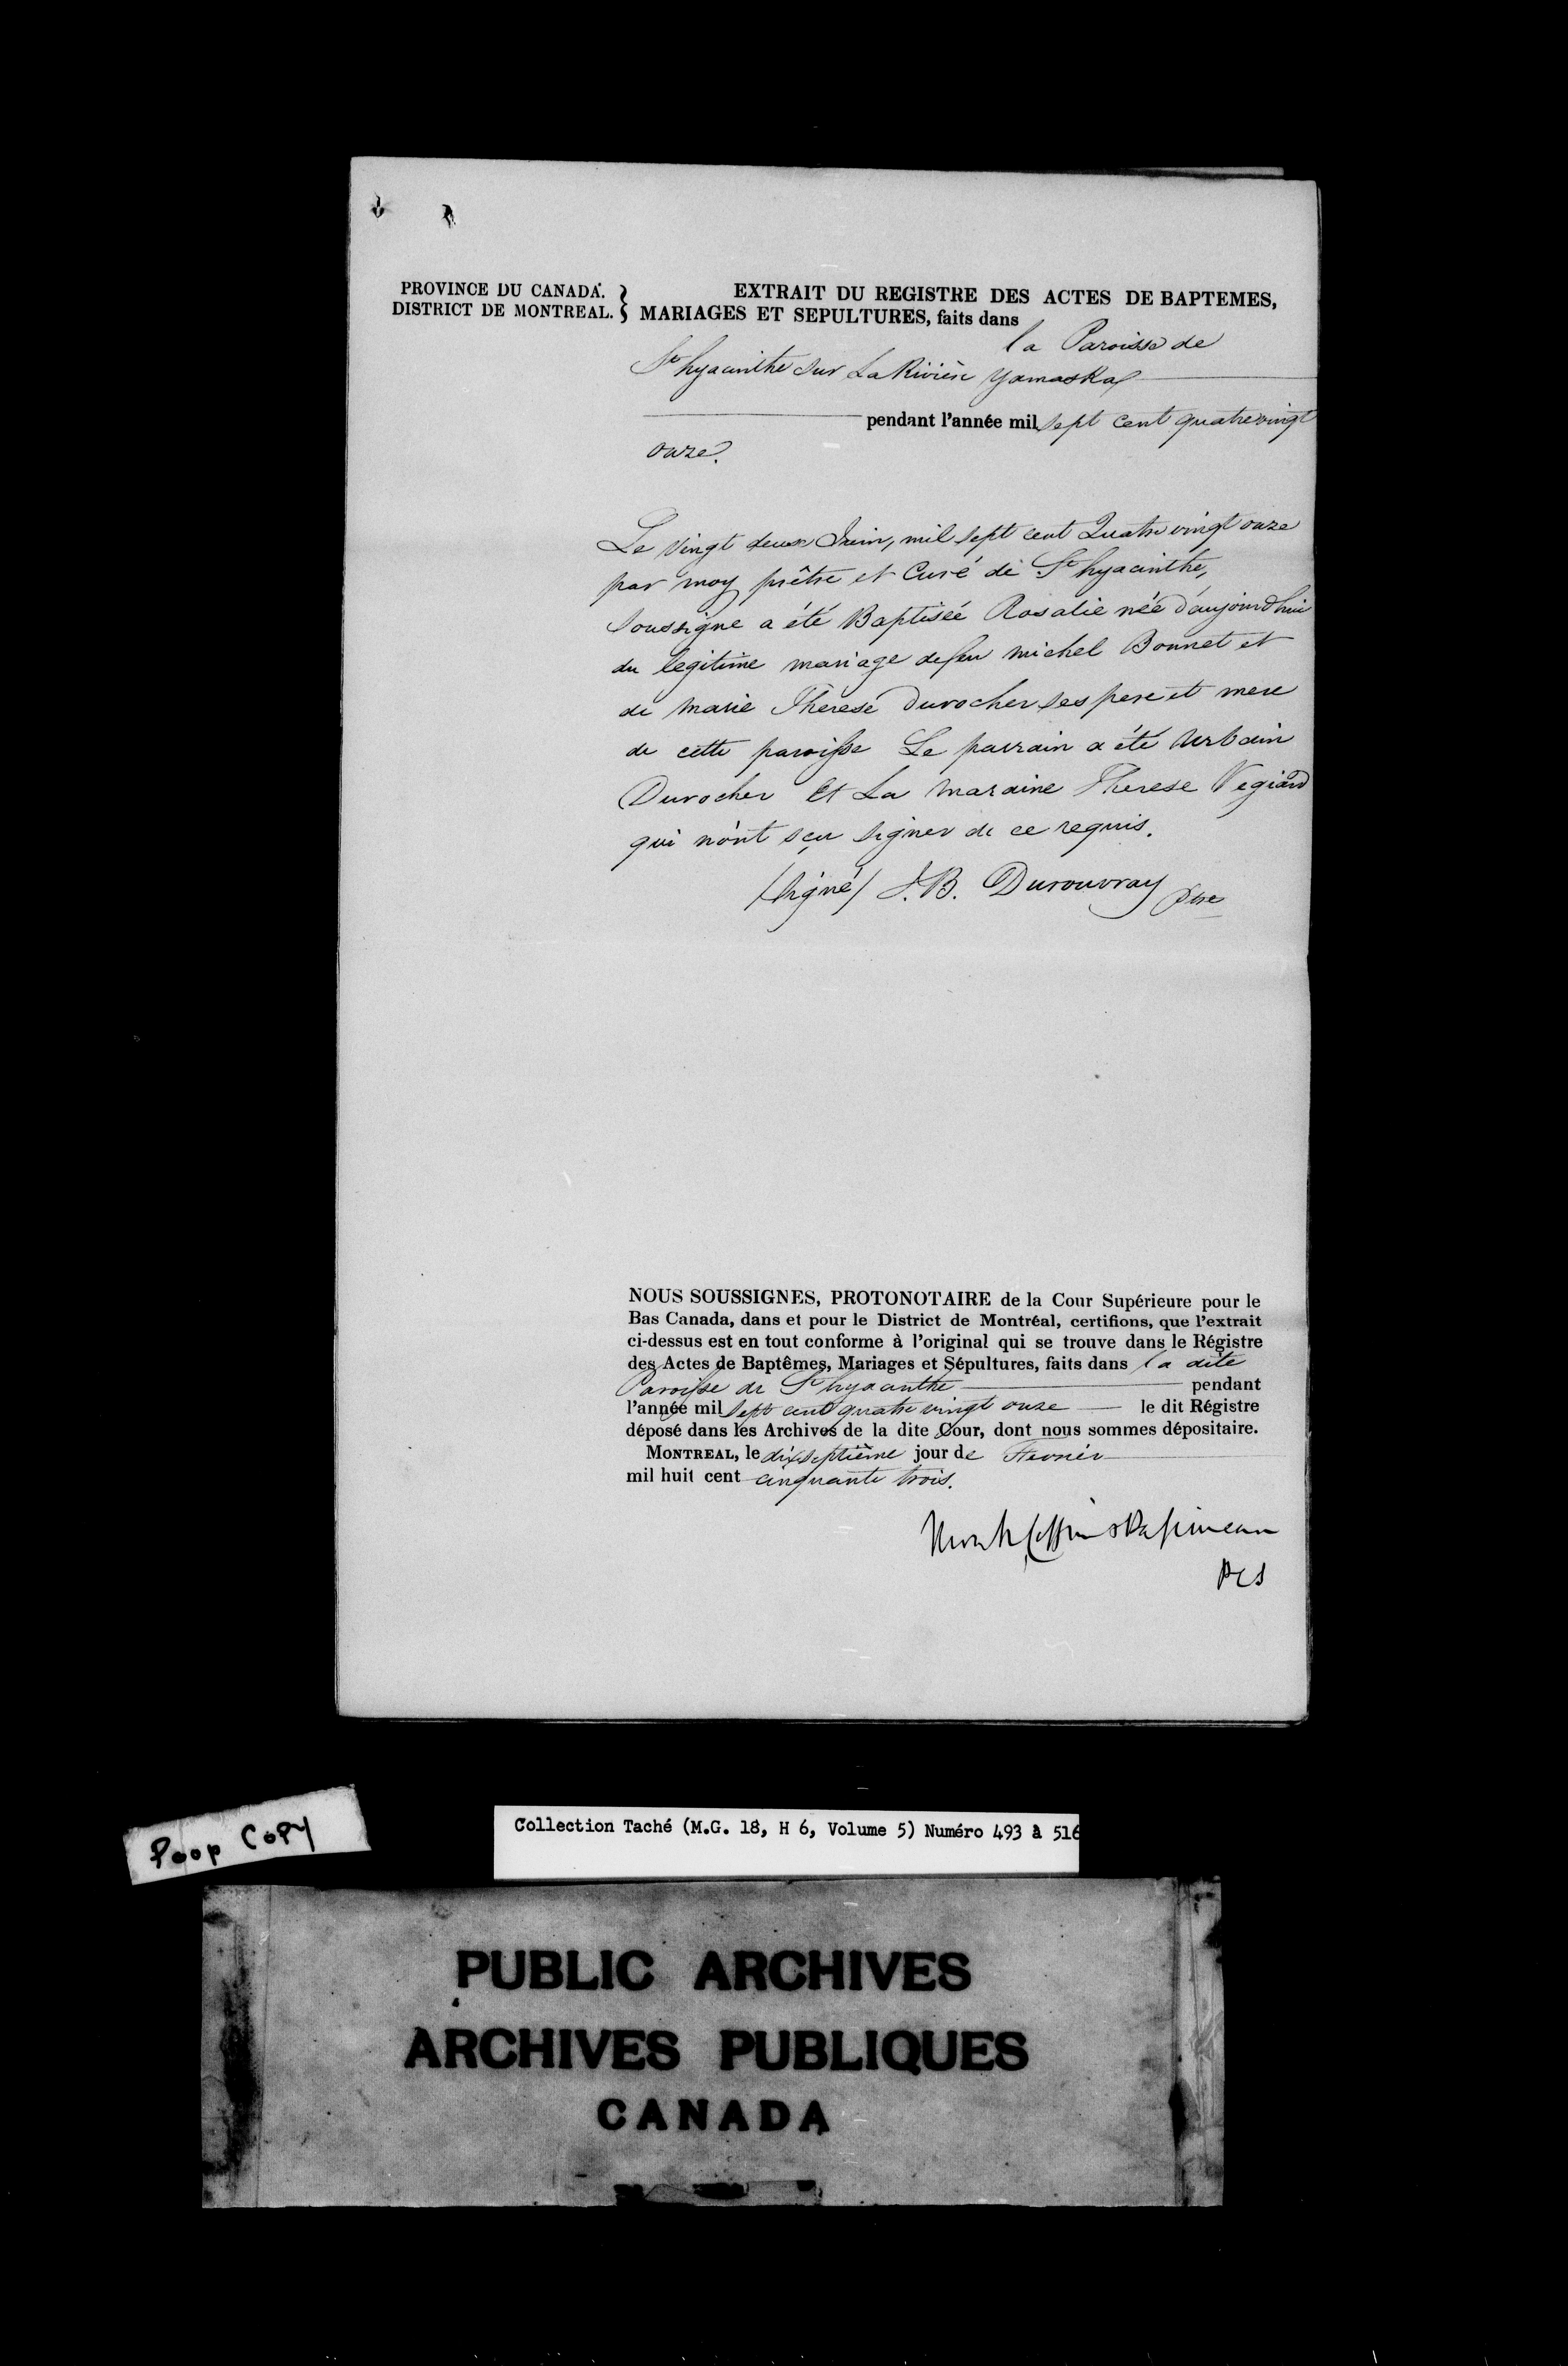 PROVINCE DU CANADA.
DISTRICT DE MONTREAL.
EXTRAIT DU REGISTRE DES ACTES DE BAPTEMES,
MARIAGES ET SEPULTURES, faits dans
la Paroisse de
St hyacinthe sur La Rivière yamaska
pendant l'année mil sept cent quatre vingt
onze.
Le vingt deux Juin, mil sept cent Quatre vingt onze
par moy prêtre et Curé de St hyacinthe,
soussigne a été Baptiseé Rosalie née d'aujourdhui
du legitime mariage defeu michel Bonnet et
de marie Therese Durocher ses pere et mere
de cette paroisse Le parrain a été Urbain
Durocher Et La maraine Therese Vegiard
qui n'ont sçu signer de ce requis.
/signé/ J.B. Durouvray ptre
NOUS SOUSSIGNES, PROTONOTAIRE de la Cour Supérieure pour le
Bas Canada, dans et pour le District de Montréal, certifions, que l'extrait
ci-dessus est en tout conforme à l'original qui se trouve dans le Régistre
des Actes de Baptêmes, Mariages et Sépultures, faits dans la dite
Paroisse de St hyacinthe pendant
l'année mil sept cent quatre vingt onze le dit Régistre
déposé dans les Archives de la dite Cour, dont nous sommes dépositaire.
MONTREAL, le dixseptième jour de Fevrier
mil huit cent cinquante trois.
Monk Coffin & Papineau
PCS
Poop COPY
Collection Taché (M.G. 18, H 6, Volume 5) Numéro 493 à 516
PUBLIC ARCHIVES
ARCHIVES PUBLIQUES
CANADA